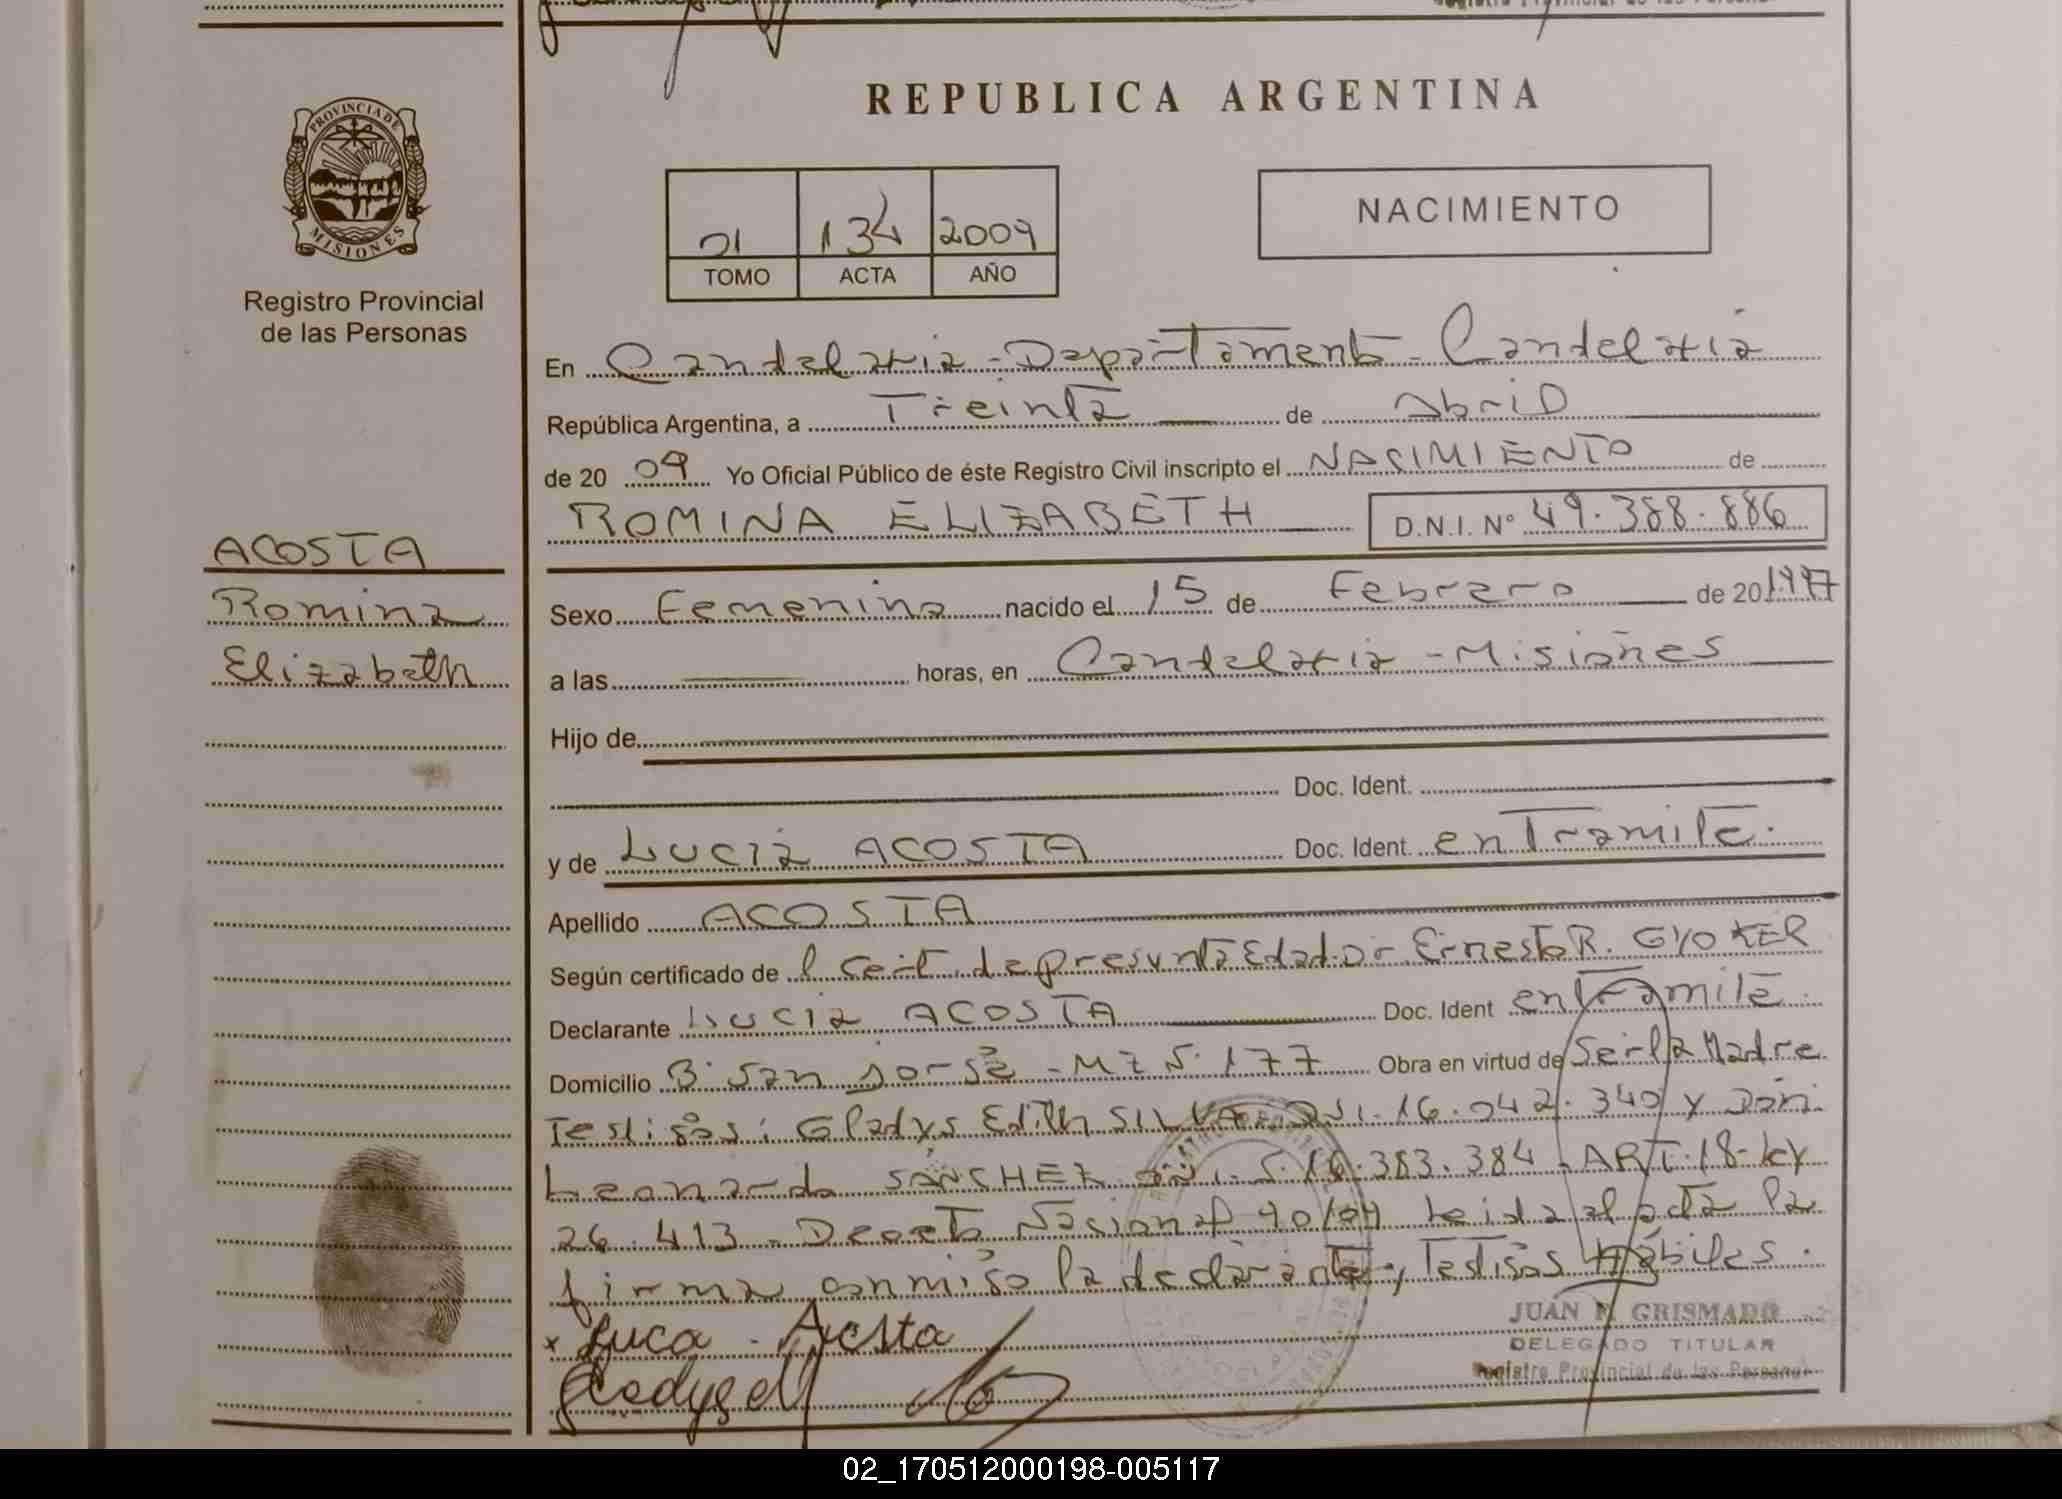 REPUBLICA ARGENTINA
PROVINCIA DE
MISIONES
Registro Provincial
de las Personas
01 134 2009
TOMO ACTA AÑO
NACIMIENTO
En Candelaria - Departamento - Candelaria
República Argentina, a Treinta de Abril
de 20 09 Yo Oficial Público de éste Registro Civil inscripto el NACIMIENTO de
ROMINA ELIZABETH D.N.I. Nº 49.388.886
ACOSTA
Romina
Elizabeth
Sexo Femenino nacido el 15 de Febrero de 20 1997
a las horas, en Candelaria - Misiones
Hijo de
Doc. Ident.
y de Lucia ACOSTA Doc. Ident. en Tramite.
Apellido ACOSTA
Según certificado de Cert de presunta Edad. Dr. Ernesto R.
Declarante Lucia ACOSTA Doc. Ident en Tramite.
Domicilio B. San Jorge - MZ 5. 177 Obra en virtud de Ser la Madre
Testigos: Gladys Edith SILVA 16.042.340 y Don.
Leonardo SANCHEZ .383.384 - ART. 18 - Ley
26.413 - Decreto Nacional 90/09 Leida el acta la
firma conmigo la declarante y Testigos Hábiles.
JUAN GRISMADO
DELEGADO TITULAR
Registro Provincial de las Personas
02_170512000198-005117